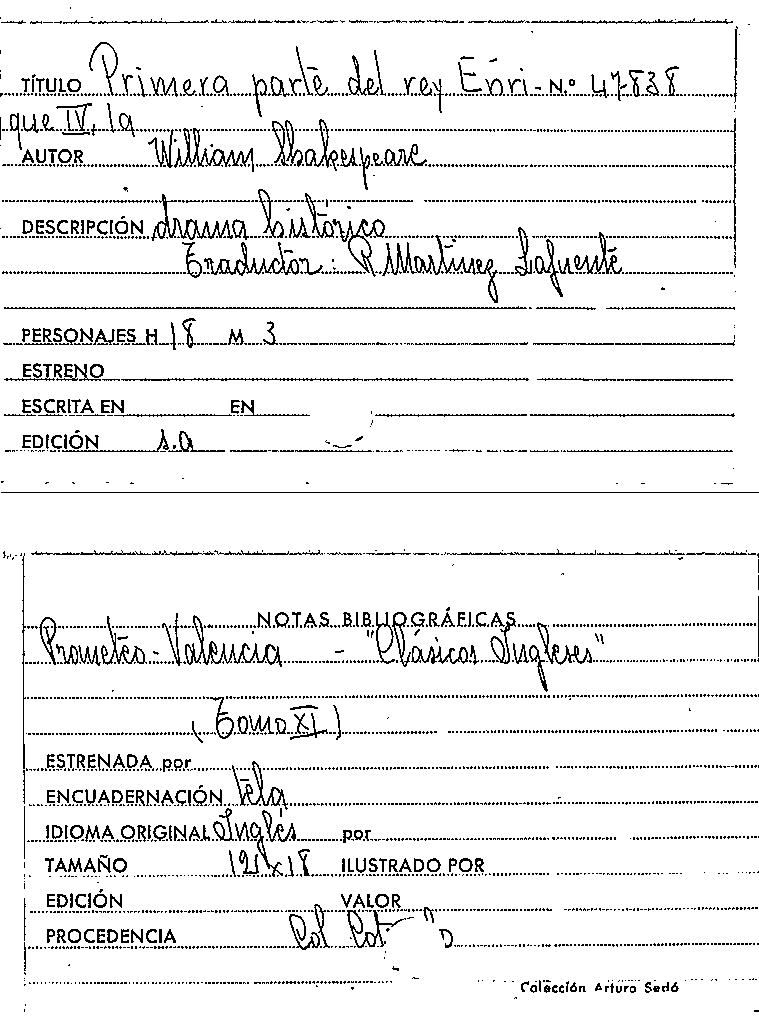 TÍTULO Primera parte del rey Enri- N.º 47-838
que IV, la
AUTOR William Shakespeare
DESCRIPCIÓN drama histórico
Traductor: R Martinez Lafuente
PERSONAJES H 18 M 3
ESTRENO
ESCRITA EN EN
EDICIÓN s.a
NOTAS BIBLIOGRÁFICAS
Prometeo - Valencia - "Clásicos Ingleses"
(Tomo XI)
ESTRENADA por
ENCUADERNACIÓN tela
IDIOMA ORIGINAL Inglés por
TAMAÑO x18 ILUSTRADO POR
EDICIÓN VALOR
PROCEDENCIA Col Cot
Colección Arturo Sedó